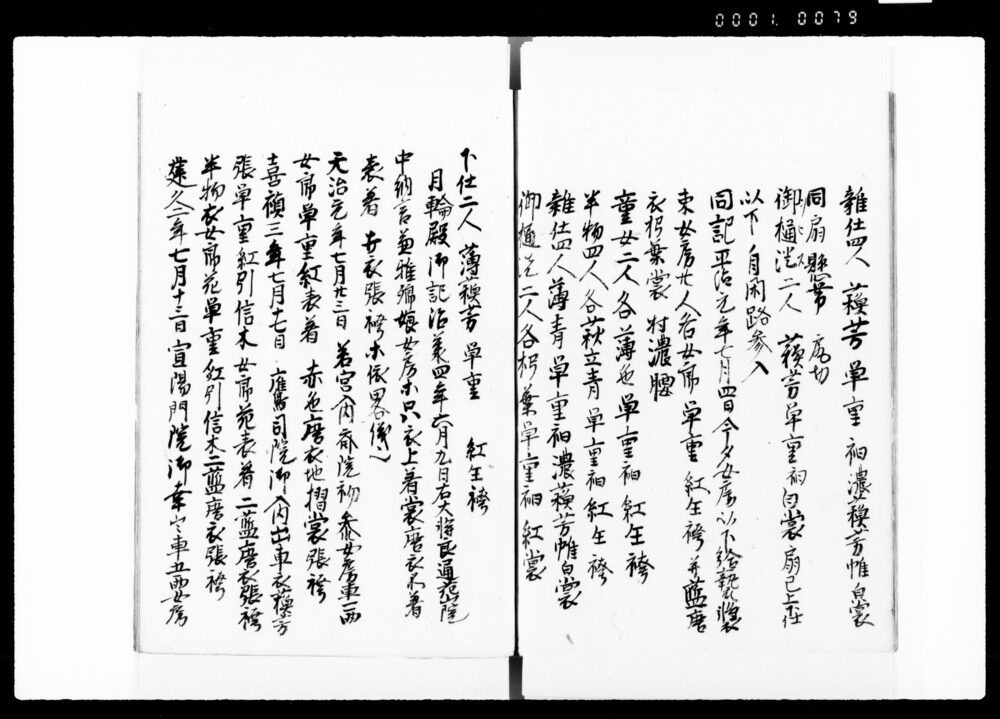 0001.0079
雑仕四人 蘓芳単重 袙濃蘓芳帷白裳
同扇懸帯
御樋洗二人 蘓芳単重袙白裳扇已上
以下自閑路参入
同記平治元年七月四日今夕女房以下給装
束女房廿人各女郎単重 紅生袴 藍唐
衣朽葉裳 村濃腰
童女二人各薄色単重袙紅生袴
半物四人各萩立青単重袙紅生袴
雑仕四人薄青単重袙濃蘓芳帷白裳
御樋洗二人各朽葉単重袙紅裳
下仕二人 薄蘓芳単重 紅生袴
月輪殿御記治承四年六月九日右大将良通
中納言兼雅 女房 只衣上着裳唐衣不着
表着 衣張袴 依略儀也
元治元年七月廿三日 若宮入内斎院初参女房車一両
女郎単重紅表着 赤色唐衣地摺裳張袴
嘉禎三年七月十七日 鷹司院御入内出車衣蘓芳
張単重紅引信木 女郎花表着 二藍唐衣張袴
半物衣女郎花単重紅引信木二藍唐衣張袴
建久二年七月十三日宣陽門院御幸 車五両女房